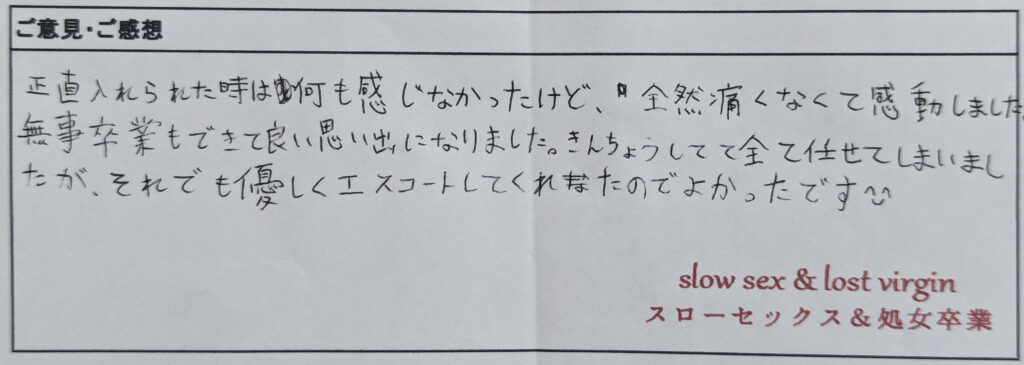 ご意見・ご感想
正直入れられた時は何も感じなかったけど、全然痛くなくて感動しました。
無事卒業もできて良い思い出になりました。きんちょうしてて全て任せてしまいまし
たが、それでも優しくエスコートしてくれたのでよかったです^^
slow sex & lost virgin
スローセックス&処女卒業